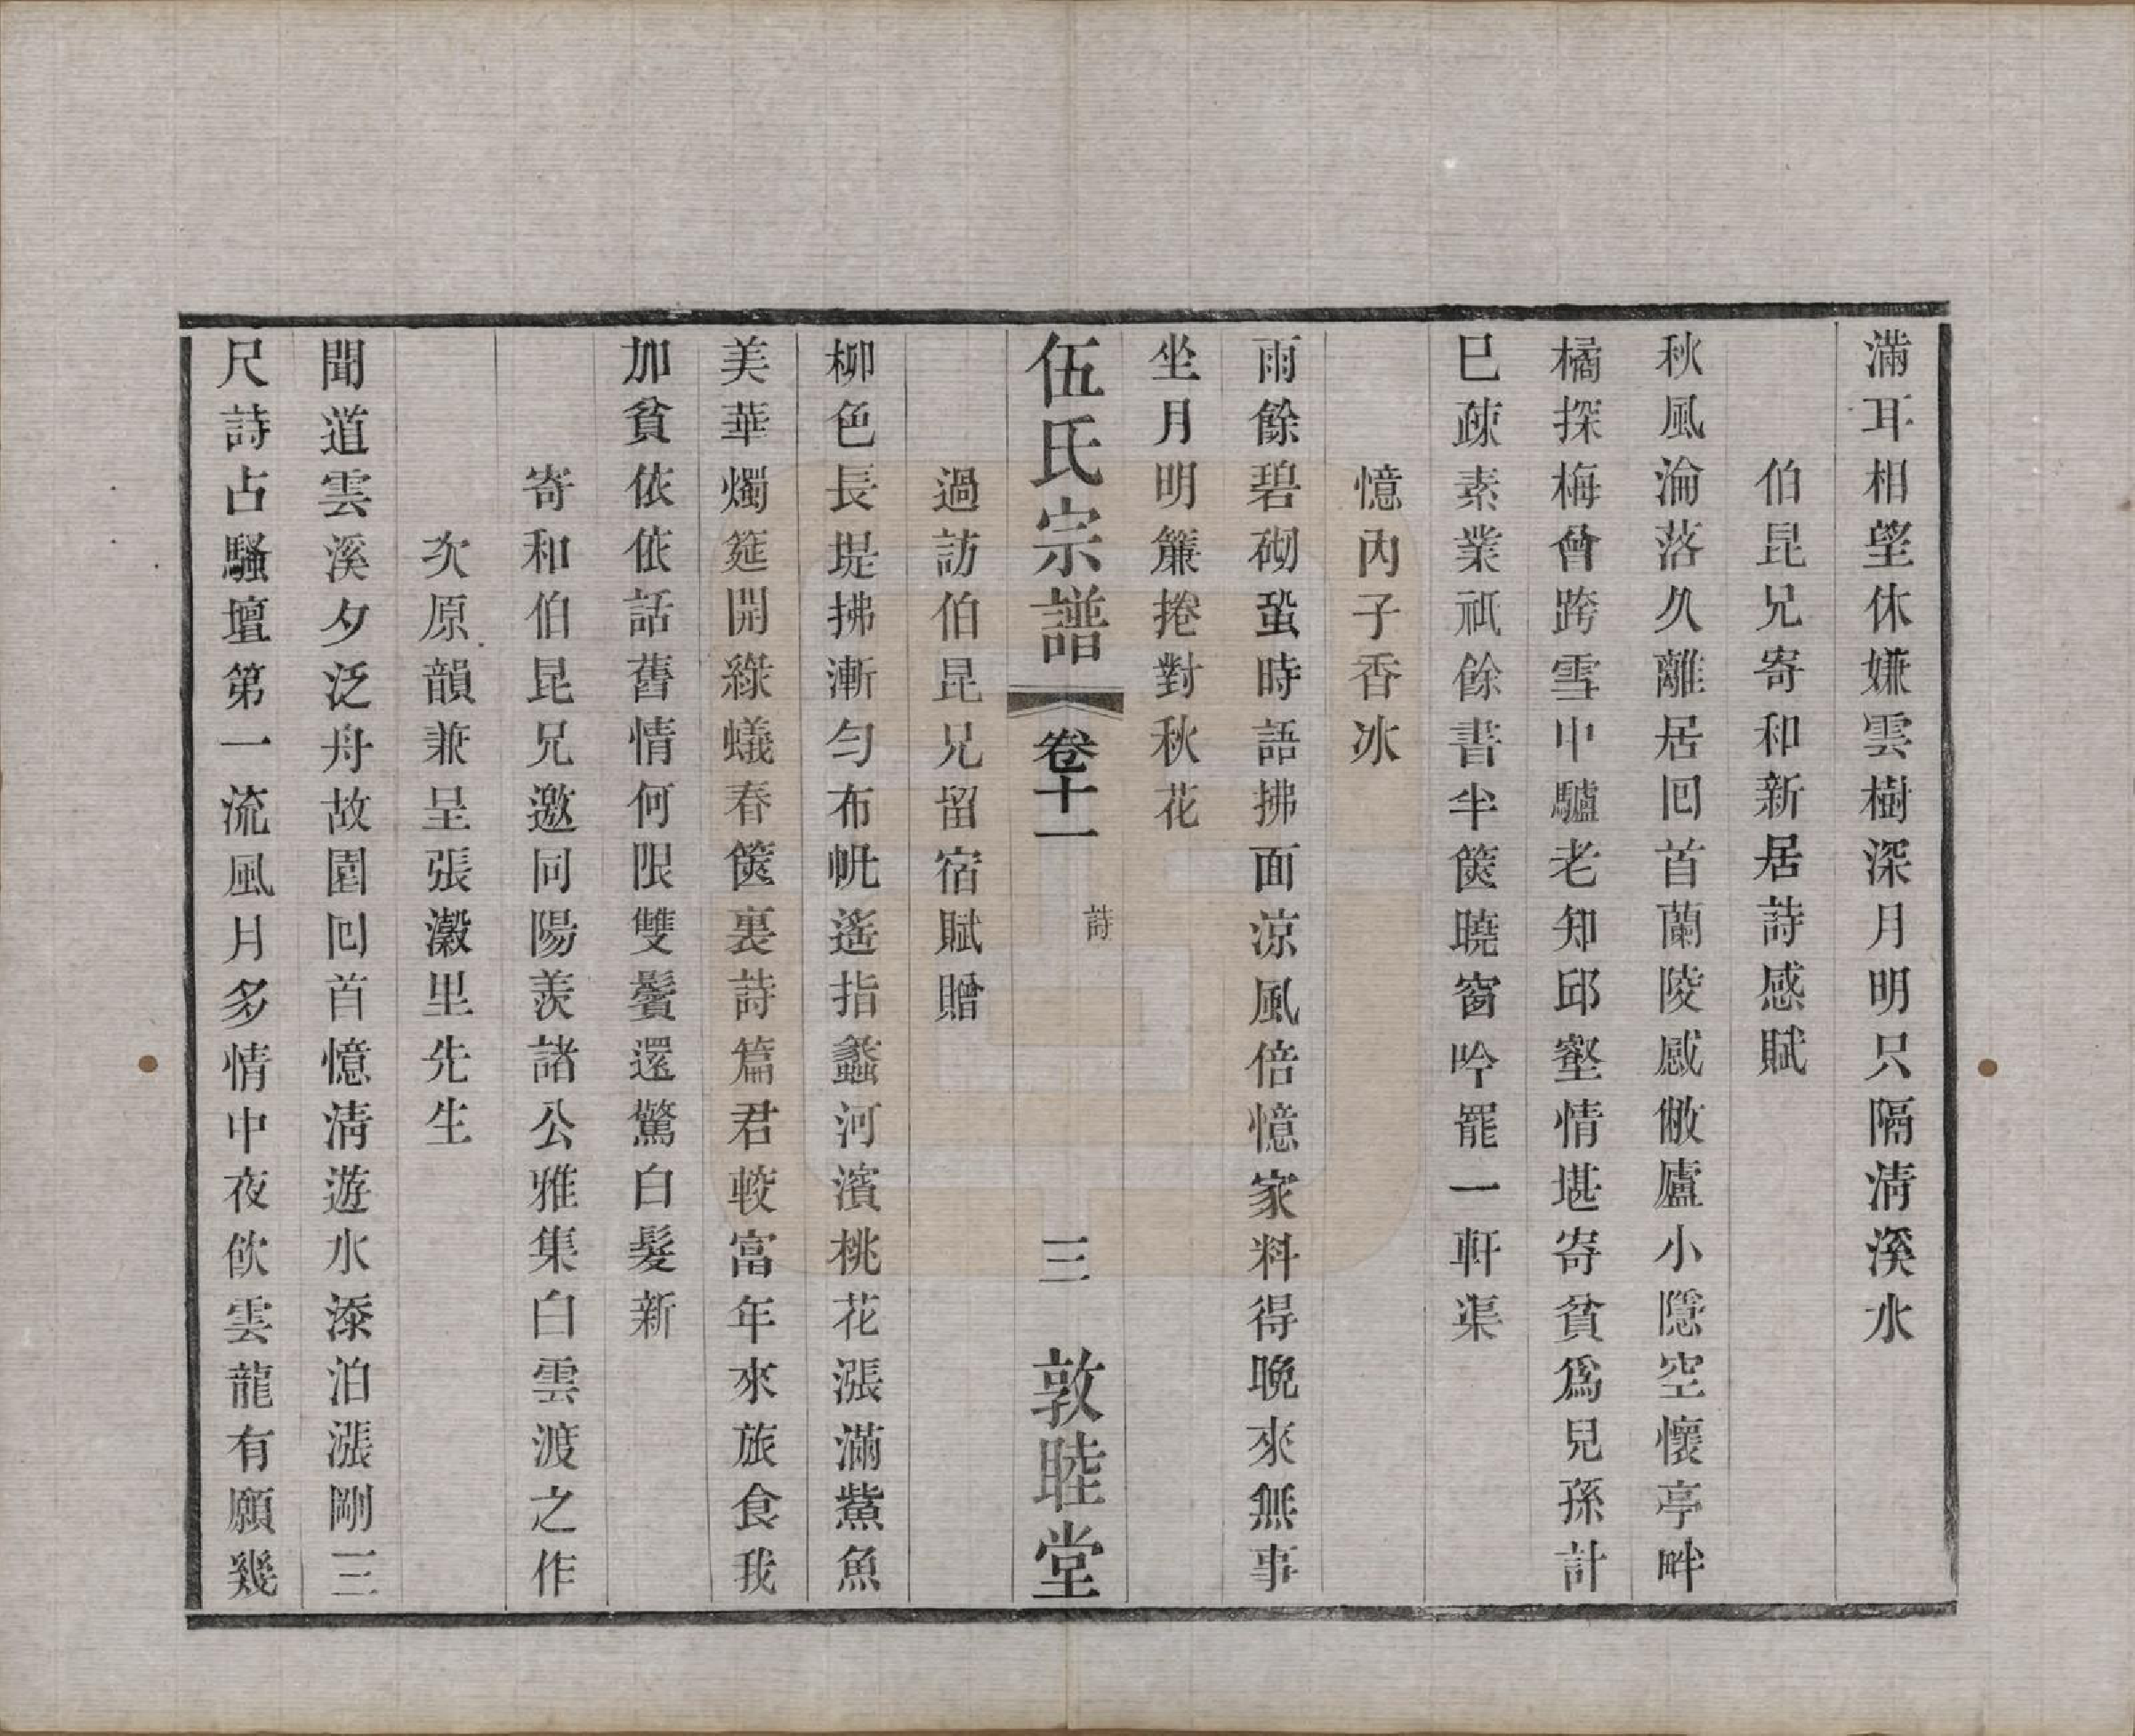 滿耳相望休嫌雲樹深月明只隔淸溪水
伯昆兄寄和新居詩感賦
秋風淪落久離居回首蘭陵感敝廬小隱空懷亭畔
橘探梅曾跨雪中驢老知邱壑情堪寄貧爲兒孫計
已疎素業祇餘書半篋曉窗吟罷一軒渠
憶內子香冰
雨餘碧砌蛩時語拂面涼風倍憶家料得晚來無事
坐月明簾捲對秋花
伍氏宗譜 卷十一 詩 三 敦睦堂
過訪伯昆兄留宿賦贈
柳色長堤拂漸勻布帆遙指蠡河濱桃花漲滿鮆魚
美華燭筵開綠蟻春篋裏詩篇君較富年來旅食我
加貧依依話舊情何限雙鬢還驚白髮新
寄和伯昆兄邀同陽羨諸公雅集白雲渡之作
次原韻兼呈張瀫里先生
聞道雲溪夕泛舟故園回首憶淸遊水添泊漲剛三
尺詩占騷壇第一流風月多情中夜飲雲龍有願幾